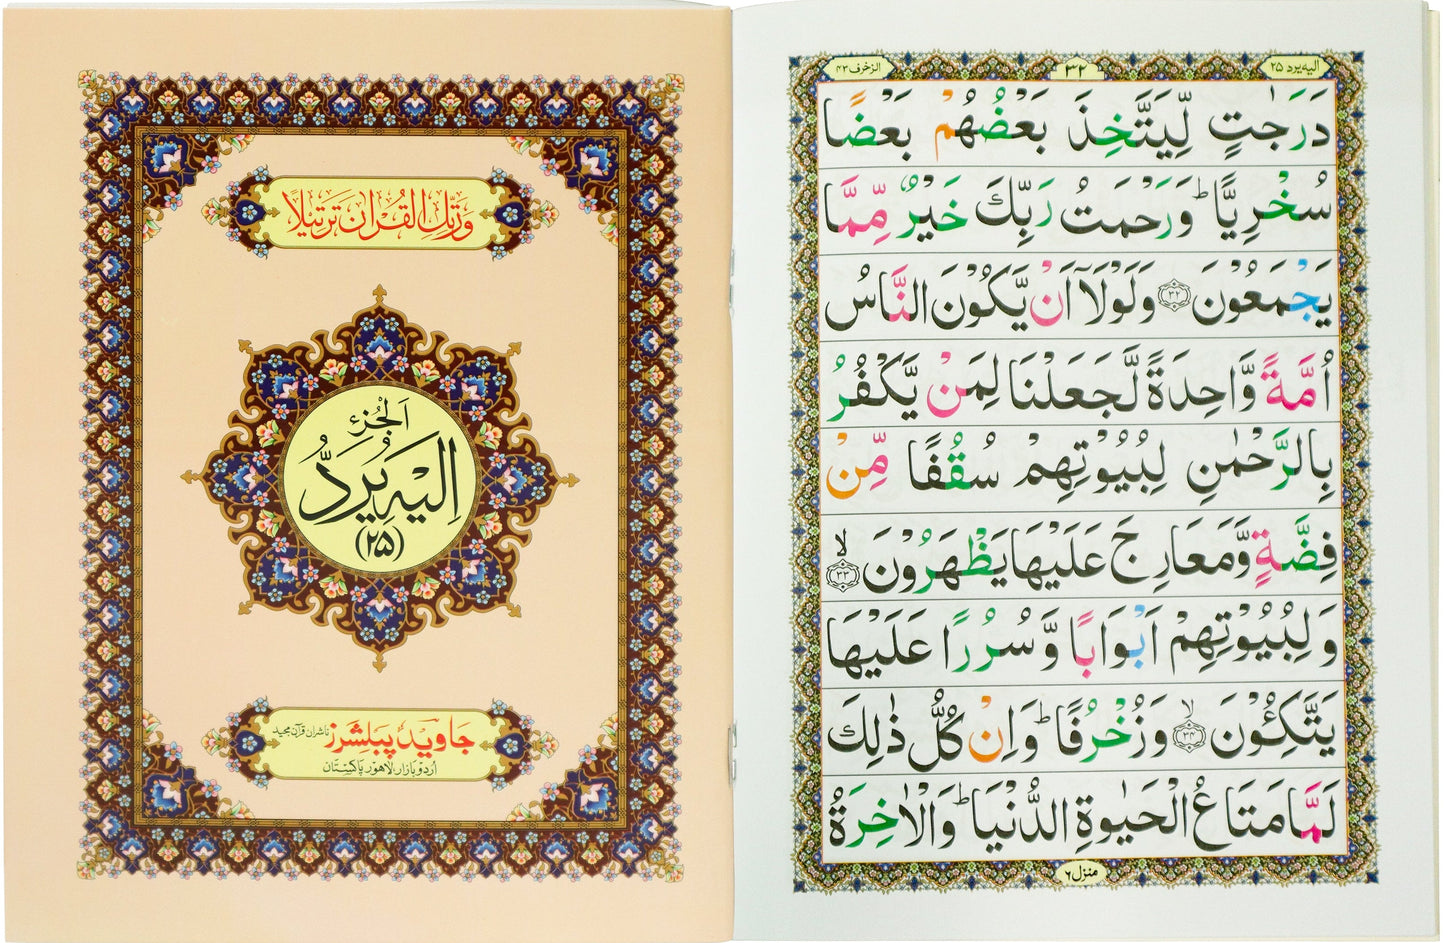 وَرَتِّلِ الْقُرْاٰنَ تَرْتِيْلًا
اَلْجُزْءُ
اِلَيْهِ يُرَدُّ
(۲۵)
جاوید پبلشرز ناشران قرآن مجید
اُردو بازار، لاہور پاکستان
الیه یرد ۲۵
۳۲
الزخرف ۴۳
دَرَجٰتٍ لِّيَتَّخِذَ بَعْضُهُمْ بَعْضًا
سُخْرِيًّا ؕ وَرَحْمَتُ رَبِّكَ خَيْرٌ مِّمَّا
يَجْمَعُوْنَ ۳۲ وَلَوْلَاۤ اَنْ يَّكُوْنَ النَّاسُ
اُمَّةً وَّاحِدَةً لَّجَعَلْنَا لِمَنْ يَّكْفُرُ
بِالرَّحْمٰنِ لِبُيُوْتِهِمْ سُقُفًا مِّنْ
فِضَّةٍ وَّمَعَارِجَ عَلَيْهَا يَظْهَرُوْنَ ۙ ۳۳
وَلِبُيُوْتِهِمْ اَبْوَابًا وَّسُرُرًا عَلَيْهَا
يَتَّكِـُٔوْنَ ۙ ۳۴ وَزُخْرُفًا ؕ وَاِنْ كُلُّ ذٰلِكَ
لَمَّا مَتَاعُ الْحَيٰوةِ الدُّنْيَا ؕ وَالْاٰخِرَةُ
منزل ۶